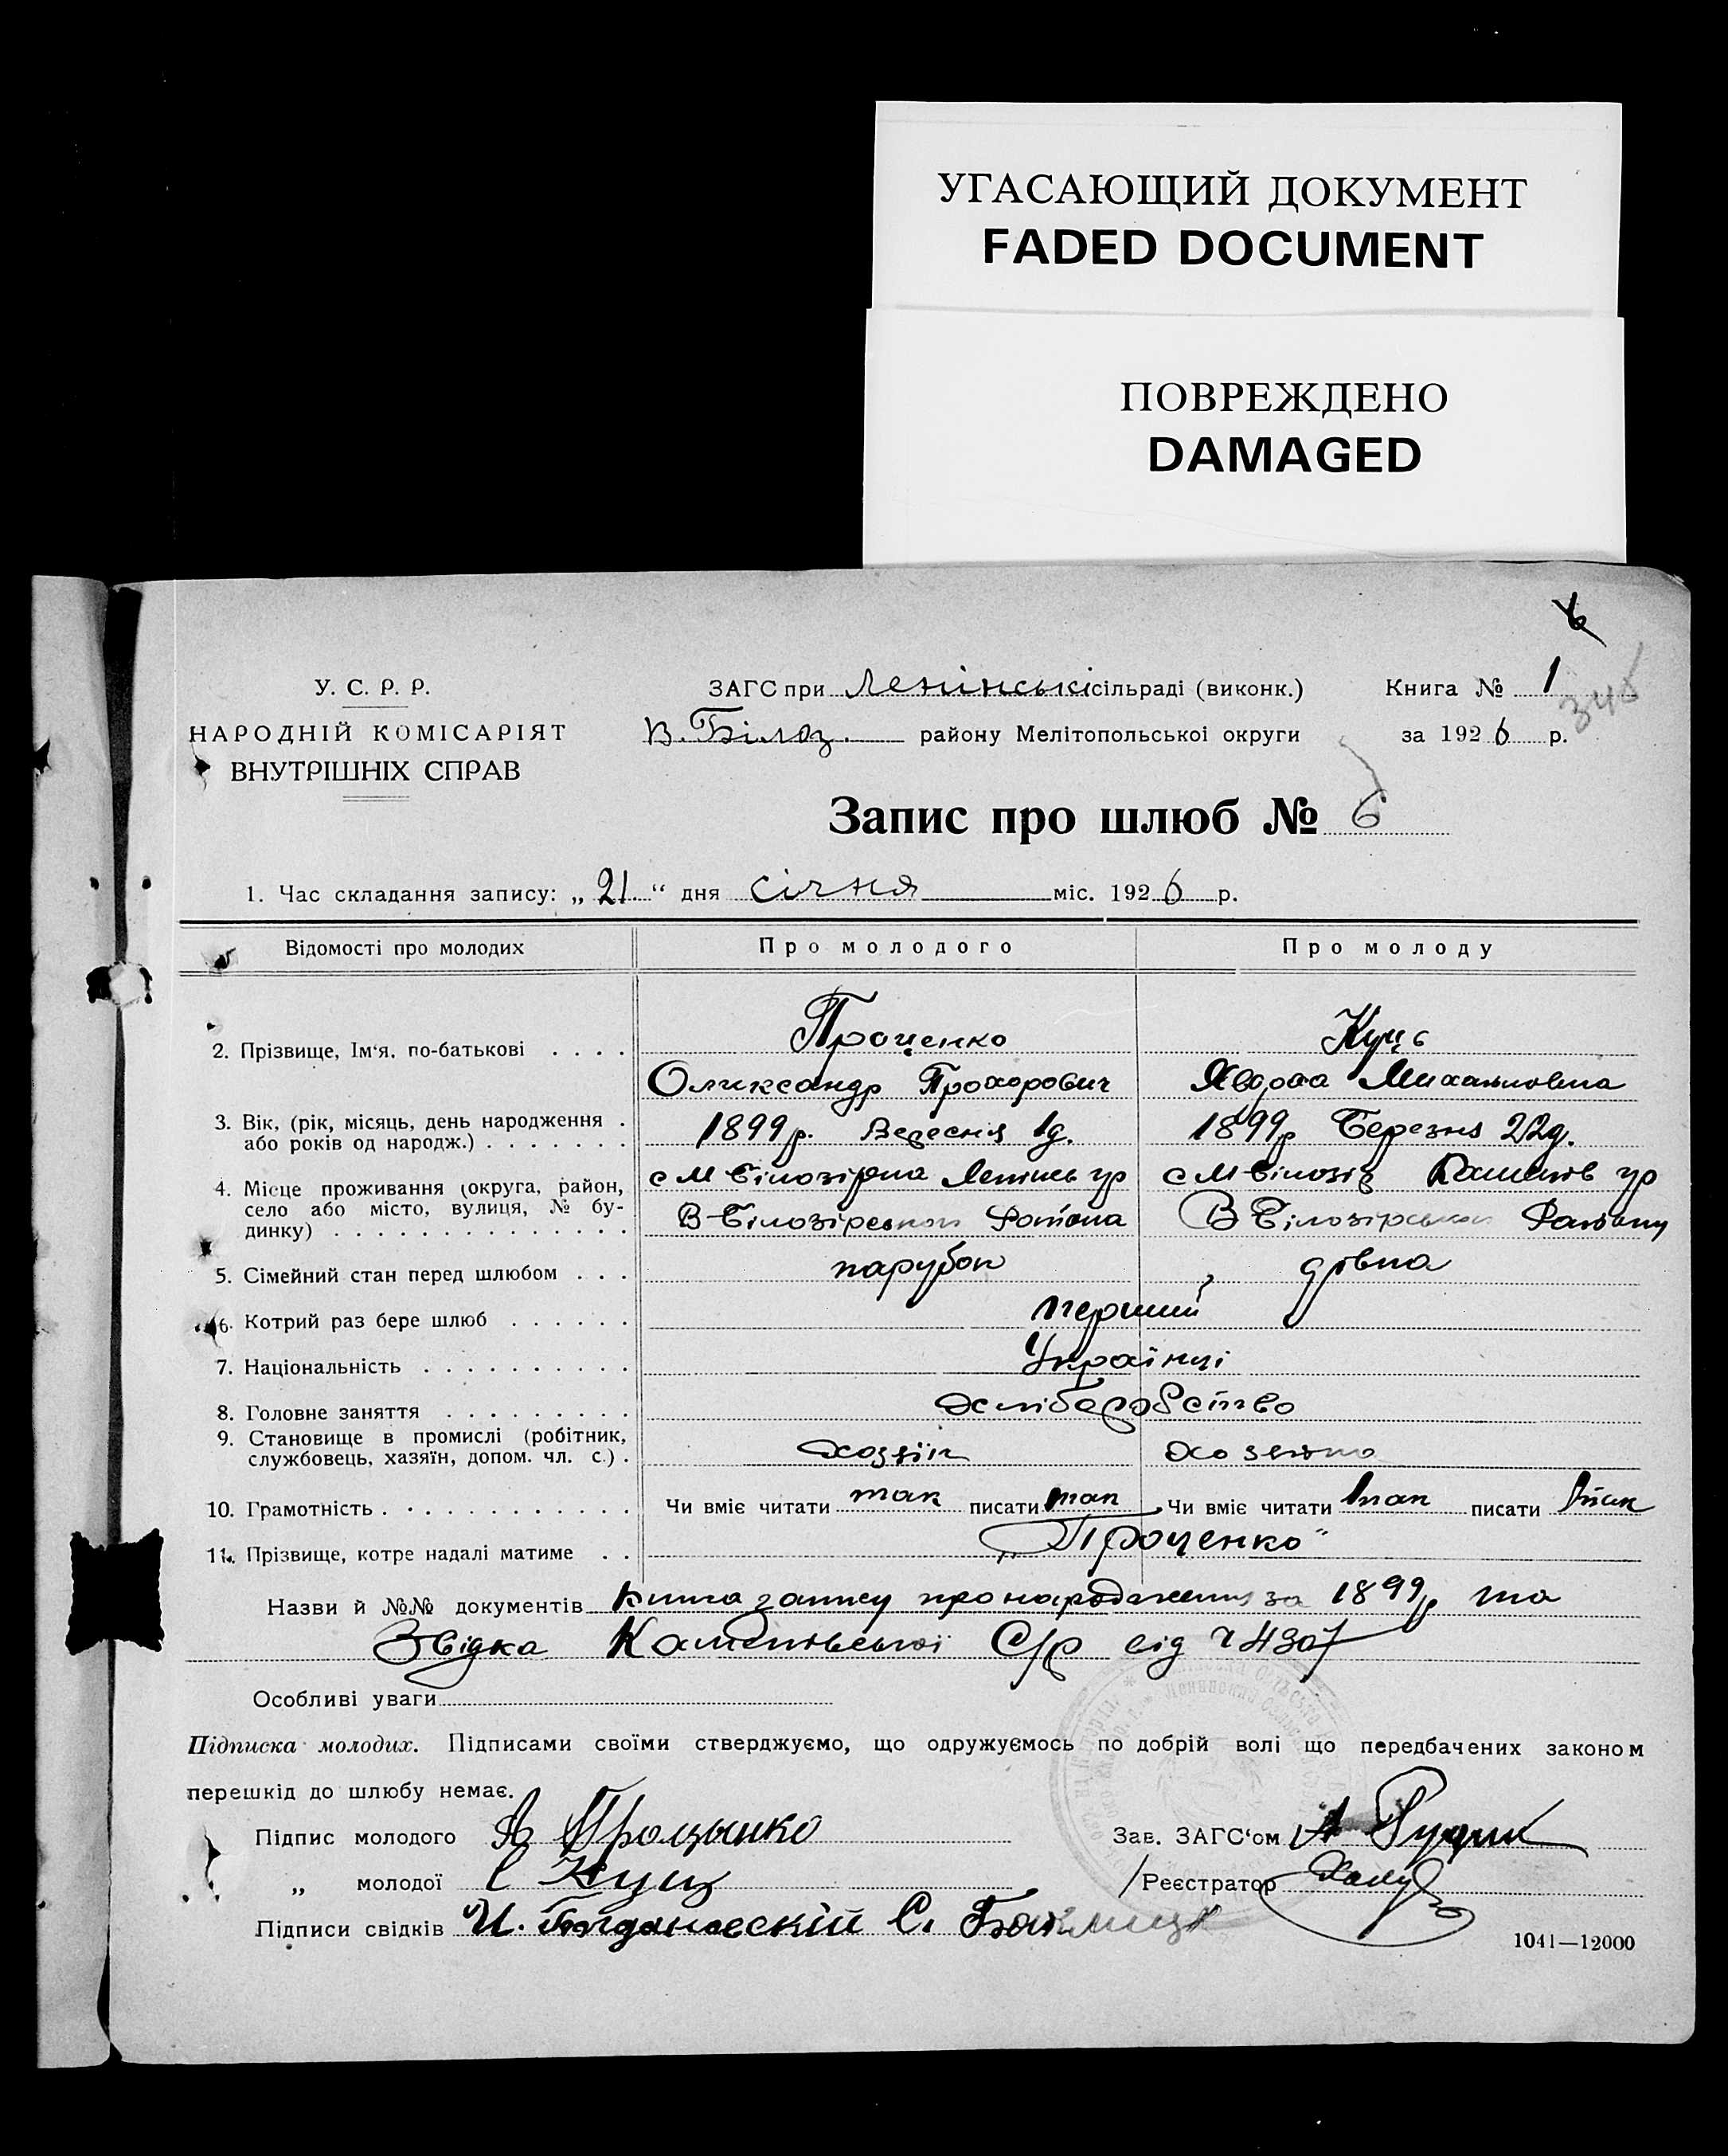 УГАСАЮЩИЙ ДОКУМЕНТ
FADED DOCUMENT
ПОВРЕЖДЕНО
DAMAGED
6
У. С. Р. Р.
НАРОДНІЙ КОМІСАРІЯТ
ВНУТРІШНІХ СПРАВ
ЗАГС при Ленінські сільраді (виконк.)
В. Білоз. району Мелітопольської округи
Книга № 1
за 1926 р.
Запис про шлюб № 6
1. Час складання запису: „21" дня січня міс. 1926 р.
Відомості про молодих Про молодого Про молоду
2. Прізвище, Ім'я, по-батькові . . . . Проценко Куць
Олександр Прохорович Михайловна
3. Вік, (рік, місяць, день народження . або років од народж.) . . . . . . . 1899 р. Вересня 1 д. 1899 р Березня 22 д.
4. Місце проживання (округа, район, село або місто, вулиця, № будинку) . . . . . . . . . . . . . .
с М Білозірка Ленінсь ур с М Білозір Каменів ур
В Білозірського Района В Білозірського Району
5. Сімейний стан перед шлюбом . . . парубок дівка
6. Котрий раз бере шлюб . . . . . . перший
7. Національність . . . . . . . . . . Українці
8. Головне заняття . . . . . . . . . хліборобство
9. Становище в промислі (робітник, службовець, хазяїн, допом. чл. с.) . хозяїн
10. Грамотність . . . . . . . . . . . Чи вміє читати так писати так Чи вміє читати так писати так
11. Прізвище, котре надалі матиме . . „Проценко"
Назви й №№ документів Книга запису про народження за 1899 р та
Звідка Каменівської С/р від ч 4307
Особливі уваги
Підписка молодих. Підписами своїми стверджуємо, що одружуємось по добрій волі що передбачених законом
перешкід до шлюбу немає.
Підпис молодого А Процынко
„ молодої Є Куц
Підписи свідків И. Богдановскій С.
Зав. ЗАГС'ом А Рудик
Реєстратор
1041—12000